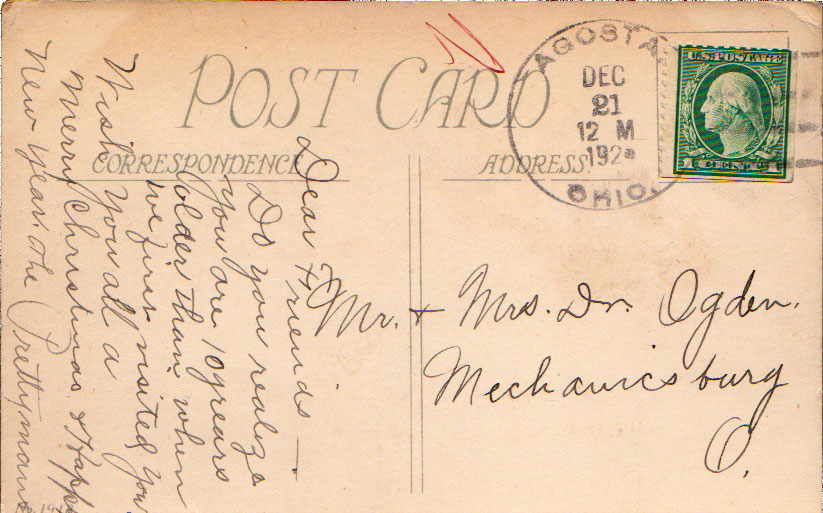 POST CARD
CORRESPONDENCE
ADDRESS.
AGOSTA
DEC
21
12 M
192
OHIO.
U.S. POSTAGE
1 CENT
Dear Friends —
Do you realize
you are 10 years
older than when
we first visited you
Wish you all a
Merry Christmas & Happy
New Year. The Prettymans
Mr. + Mrs. Dr. Ogden.
Mechanicsburg
O.